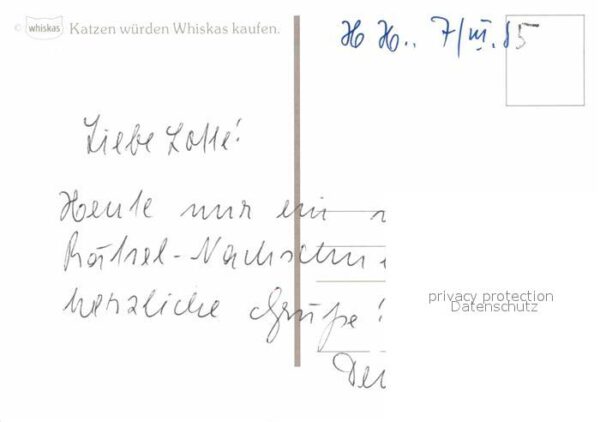 © whiskas Katzen würden Whiskas kaufen.
H H.. 7/III. 85
Liebe Lotte!
Heute nur ein
Rätsel-Nachschu
herzliche Grüße!
privacy protection
Datenschutz